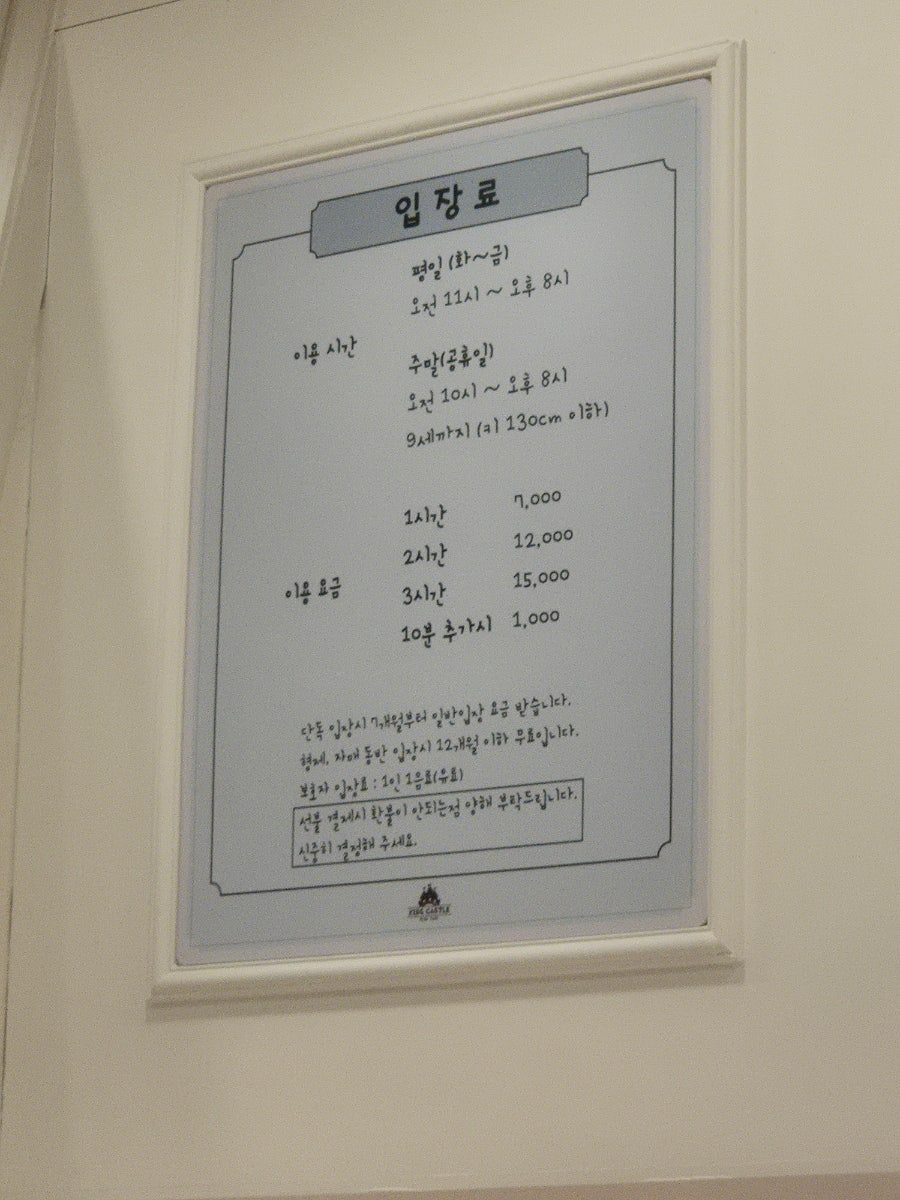 입장료
평일 (화~금)
오전 11시 ~ 오후 8시
이용 시간
주말(공휴일)
오전 10시 ~ 오후 8시
9세까지 (키 130cm 이하)
1시간 7,000
2시간 12,000
이용 요금
3시간 15,000
10분 추가시 1,000
단독 입장시 7개월부터 일반입장 요금 받습니다.
형제, 자매 동반 입장시 12개월 이하 무료입니다.
보호자 입장료 : 1인 1음료(유료)
선불 결제시 환불이 안되는점 양해 부탁드립니다.
신중히 결정해 주세요.
KING CASTLE